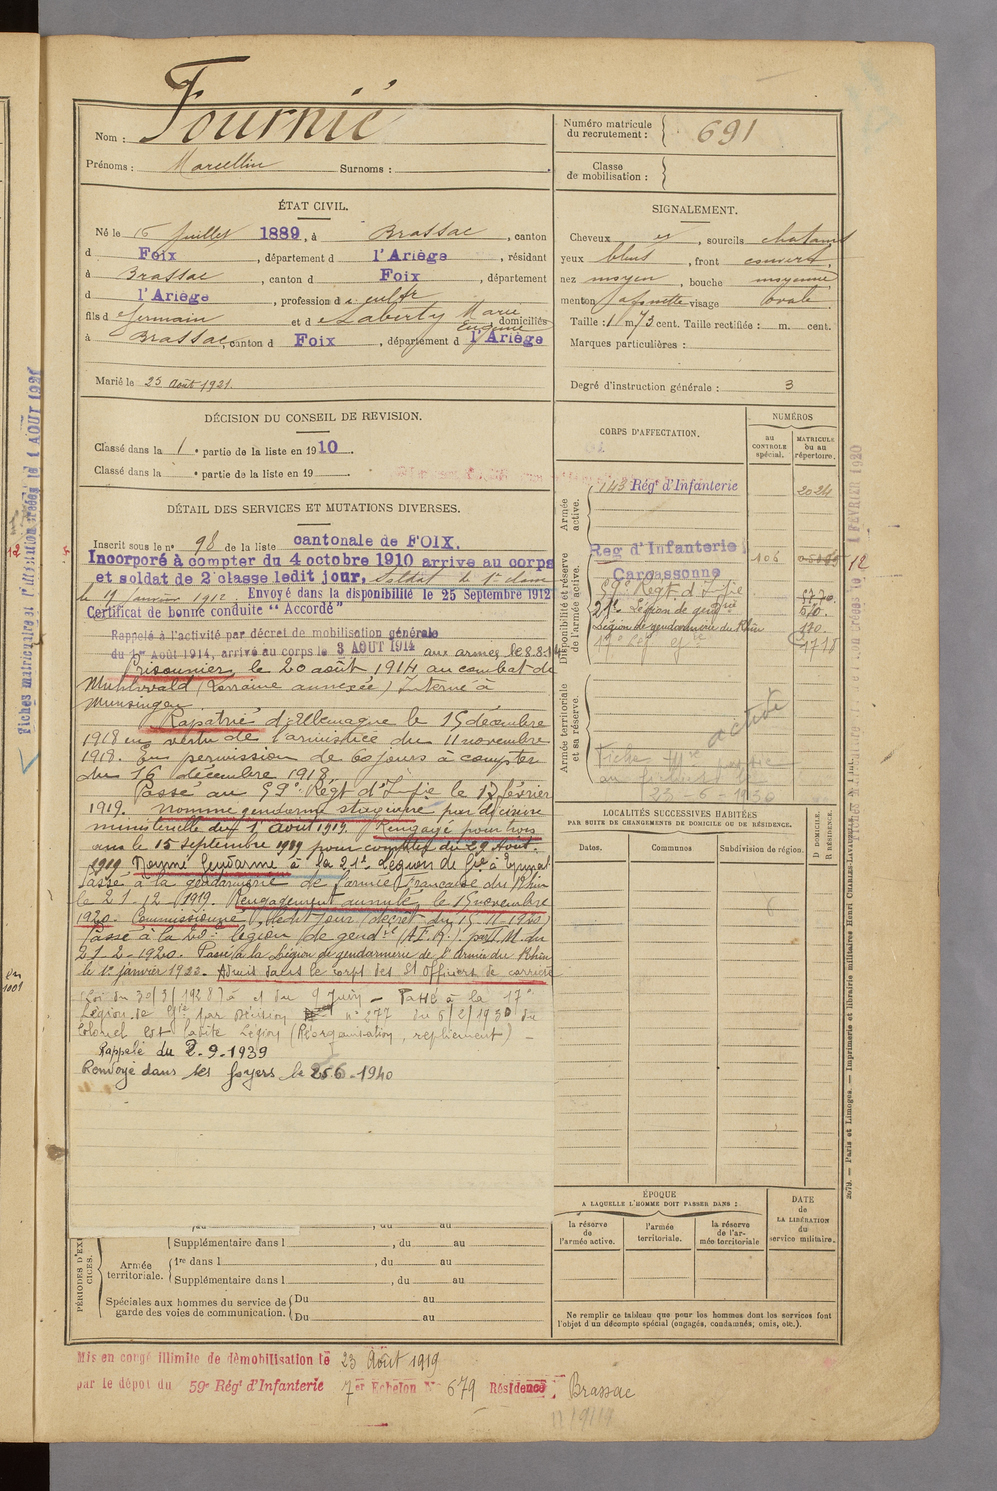 Nom : Fournié
Prénoms : Marcellin Surnoms :
ÉTAT CIVIL.
Né le 16 Juillet 1889, à Brassac, canton
d Foix, département d l'Ariège, résidant
à Brassac, canton d Foix, département
d l'Ariège, profession de cultr
fils de Germain et de Laberty Marie Eugénie, domiciliés
à Brassac, canton d Foix, département d l'Ariège
Marié le 25 Août 1921.
DÉCISION DU CONSEIL DE REVISION.
Classé dans la 1e partie de la liste en 1910.
Classé dans la e partie de la liste en 19
DÉTAIL DES SERVICES ET MUTATIONS DIVERSES.
Inscrit sous le n° 98 de la liste cantonale de FOIX.
Incorporé à compter du 4 octobre 1910 arrivé au corps
et soldat de 2e classe ledit jour, Soldat de 1e classe
le 17 janvier 1912. Envoyé dans la disponibilité le 25 Septembre 1912
Certificat de bonne conduite "Accordé"
Rappelé à l'activité par décret de mobilisation générale
du 1er Août 1914, arrivé au corps le 3 AOUT 1914 aux armées le 8.8.14
Prisonnier le 20 août 1914 au combat de
(Lorraine annexée) Interné à
Munsingen.
Rapatrié d'Allemagne le 15 décembre
1918 en vertu de l'armistice du 11 novembre
1918. En permission de 60 jours à compter
du 16 décembre 1918.
Passé au 59e Régt d'Infie le 17 février
1919. Nommé gendarme stagiaire par décision
ministérielle du 1 août 1919. Rengagé pour trois
ans le 15 septembre 1919 pour compter du 29 Août
1919 Nommé Gendarme à la 21e Légion de Gie à Epinal
Passé à la gendarmerie de l'armée française du Rhin
le 21-12-1919. Rengagement annulé, le 15 novembre
1920. Commissionné ledit jour (décret du 15-11-1920)
Passé à la légion de gendie (A.F.R.) part. M. du
21-2-1920. Passé à la Légion de gendarmerie de l'Armée du Rhin
le 1er janvier 1922. Admis dans le corps des S/ Officiers de carrière
(Loi du 30/3/1928) à cl du 9 Juin - Passé à la 17e
Légion de Gie par Décision n° 277 du 6/2/1930 du
Colonel Ct ladite Légion (Réorganisation, repliement) -
Rappelé du 2-9-1939
Renvoyé dans ses foyers le 25 6-1940
PÉRIODES D'EXERCICES.
Supplémentaire dans l , du au
Armée territoriale.
1re dans l , du au
Supplémentaire dans l , du au
Spéciales aux hommes du service de garde des voies de communication.
Du au
Du au
Mis en congé illimité de démobilisation le 23 Août 1919
par le dépôt du 59e Régt d'Infanterie 7er Echelon N° 679 Résidence : Brassac
Numéro matricule du recrutement : 691
Classe de mobilisation :
SIGNALEMENT.
Cheveux et, sourcils chatains
yeux bleus, front couvert.
nez moyen, bouche moyenne
menton à fossette visage ovale.
Taille : 1 m 73 cent. Taille rectifiée : m. cent.
Marques particulières :
Degré d'instruction générale : 3
CORPS D'AFFECTATION.
NUMÉROS
au CONTROLE spécial.
MATRICULE ou au répertoire.
Armée active.
143 Régt d'Infanterie 2024
Disponibilité et réserve de l'armée active.
Reg d'Infanterie 106
Carcassonne
12
59e Régt d'Infie
21e Légion de gendie
Légion de gendarmerie du Rhin 130.
17e Lég. Gie
Armée territoriale et sa réserve.
active
23-6-1930
LOCALITÉS SUCCESSIVES HABITÉES
PAR SUITE DE CHANGEMENTS DE DOMICILE OU DE RÉSIDENCE.
Dates. Communes Subdivision de région. D DOMICILE. R RÉSIDENCE.
ÉPOQUE
A LAQUELLE L'HOMME DOIT PASSER DANS :
la réserve de l'armée active.
l'armée territoriale.
la réserve de l'armée territoriale
DATE de LA LIBÉRATION du service militaire.
Ne remplir ce tableau que pour les hommes dont les services font
l'objet d'un décompte spécial (engagés, condamnés, omis, etc.).
2079. — Paris et Limoges. — Imprimerie et librairie militaires Henri CHARLES-LAVAUZELLE.